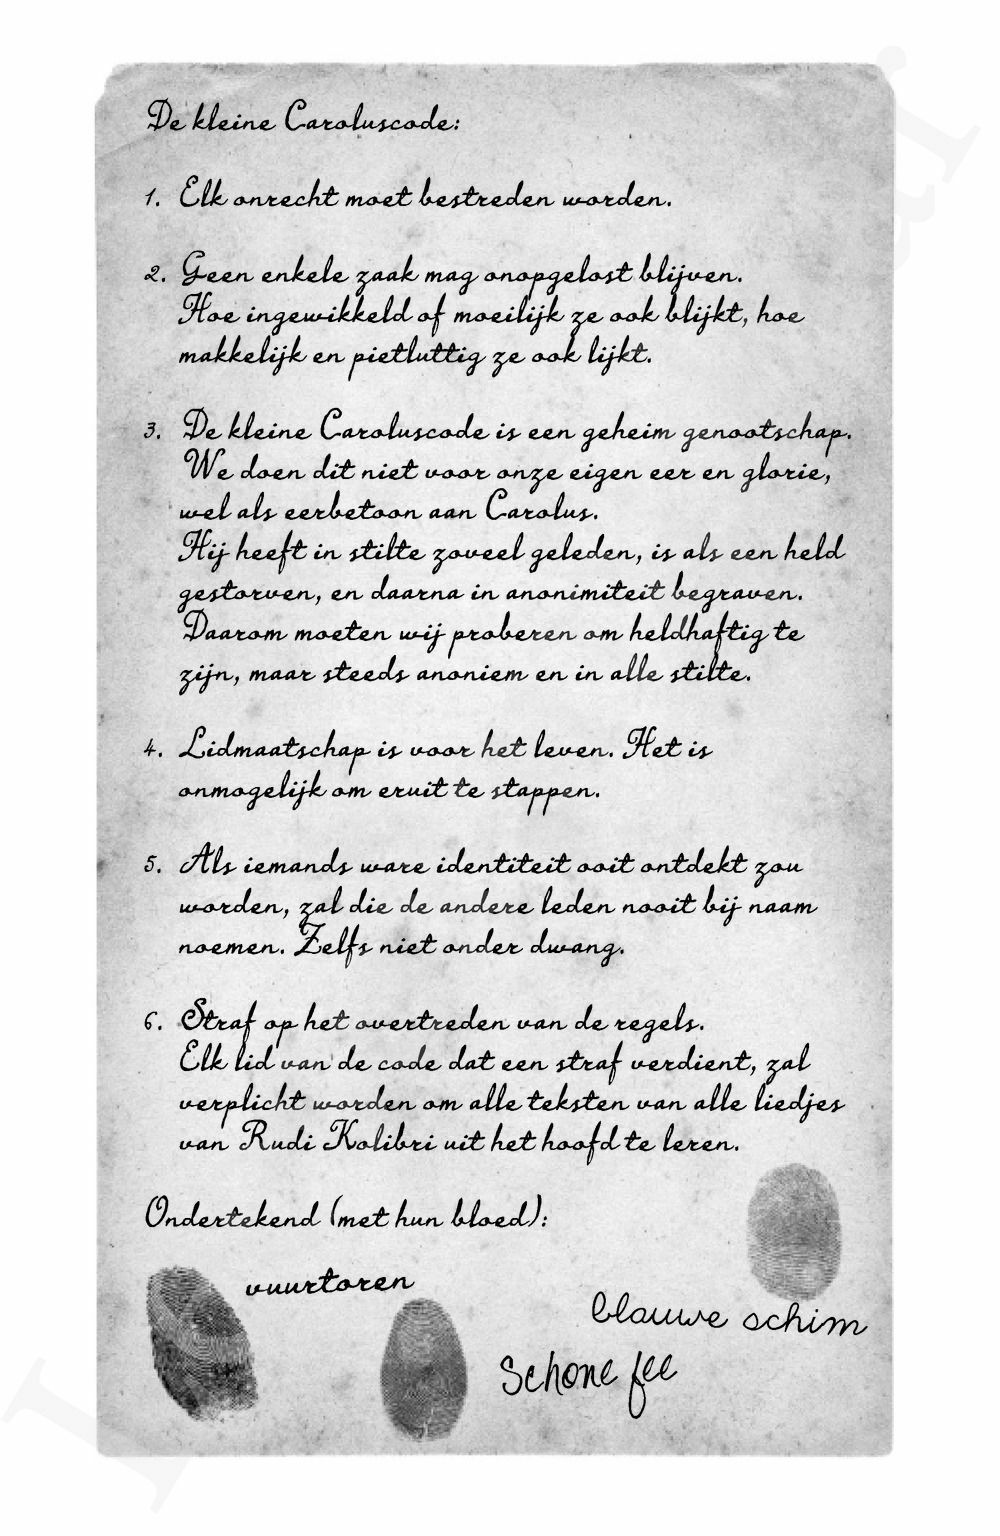 De kleine Caroluscode:
1. Elk onrecht moet bestreden worden.
2. Geen enkele zaak mag onopgelost blijven.
Hoe ingewikkeld of moeilijk ze ook blijkt, hoe
makkelijk en pietluttig ze ook lijkt.
3. De kleine Caroluscode is een geheim genootschap.
We doen dit niet voor onze eigen eer en glorie,
wel als eerbetoon aan Carolus.
Hij heeft in stilte zoveel geleden, is als een held
gestorven, en daarna in anonimiteit begraven.
Daarom moeten wij proberen om heldhaftig te
zijn, maar steeds anoniem en in alle stilte.
4. Lidmaatschap is voor het leven. Het is
onmogelijk om eruit te stappen.
5. Als iemands ware identiteit ooit ontdekt zou
worden, zal die de andere leden nooit bij naam
noemen. Zelfs niet onder dwang.
6. Straf op het overtreden van de regels.
Elk lid van de code dat een straf verdient, zal
verplicht worden om alle teksten van alle liedjes
van Rudi Kolibri uit het hoofd te leren.
Ondertekend (met hun bloed):
vuurtoren
blauwe schim
Schone fee